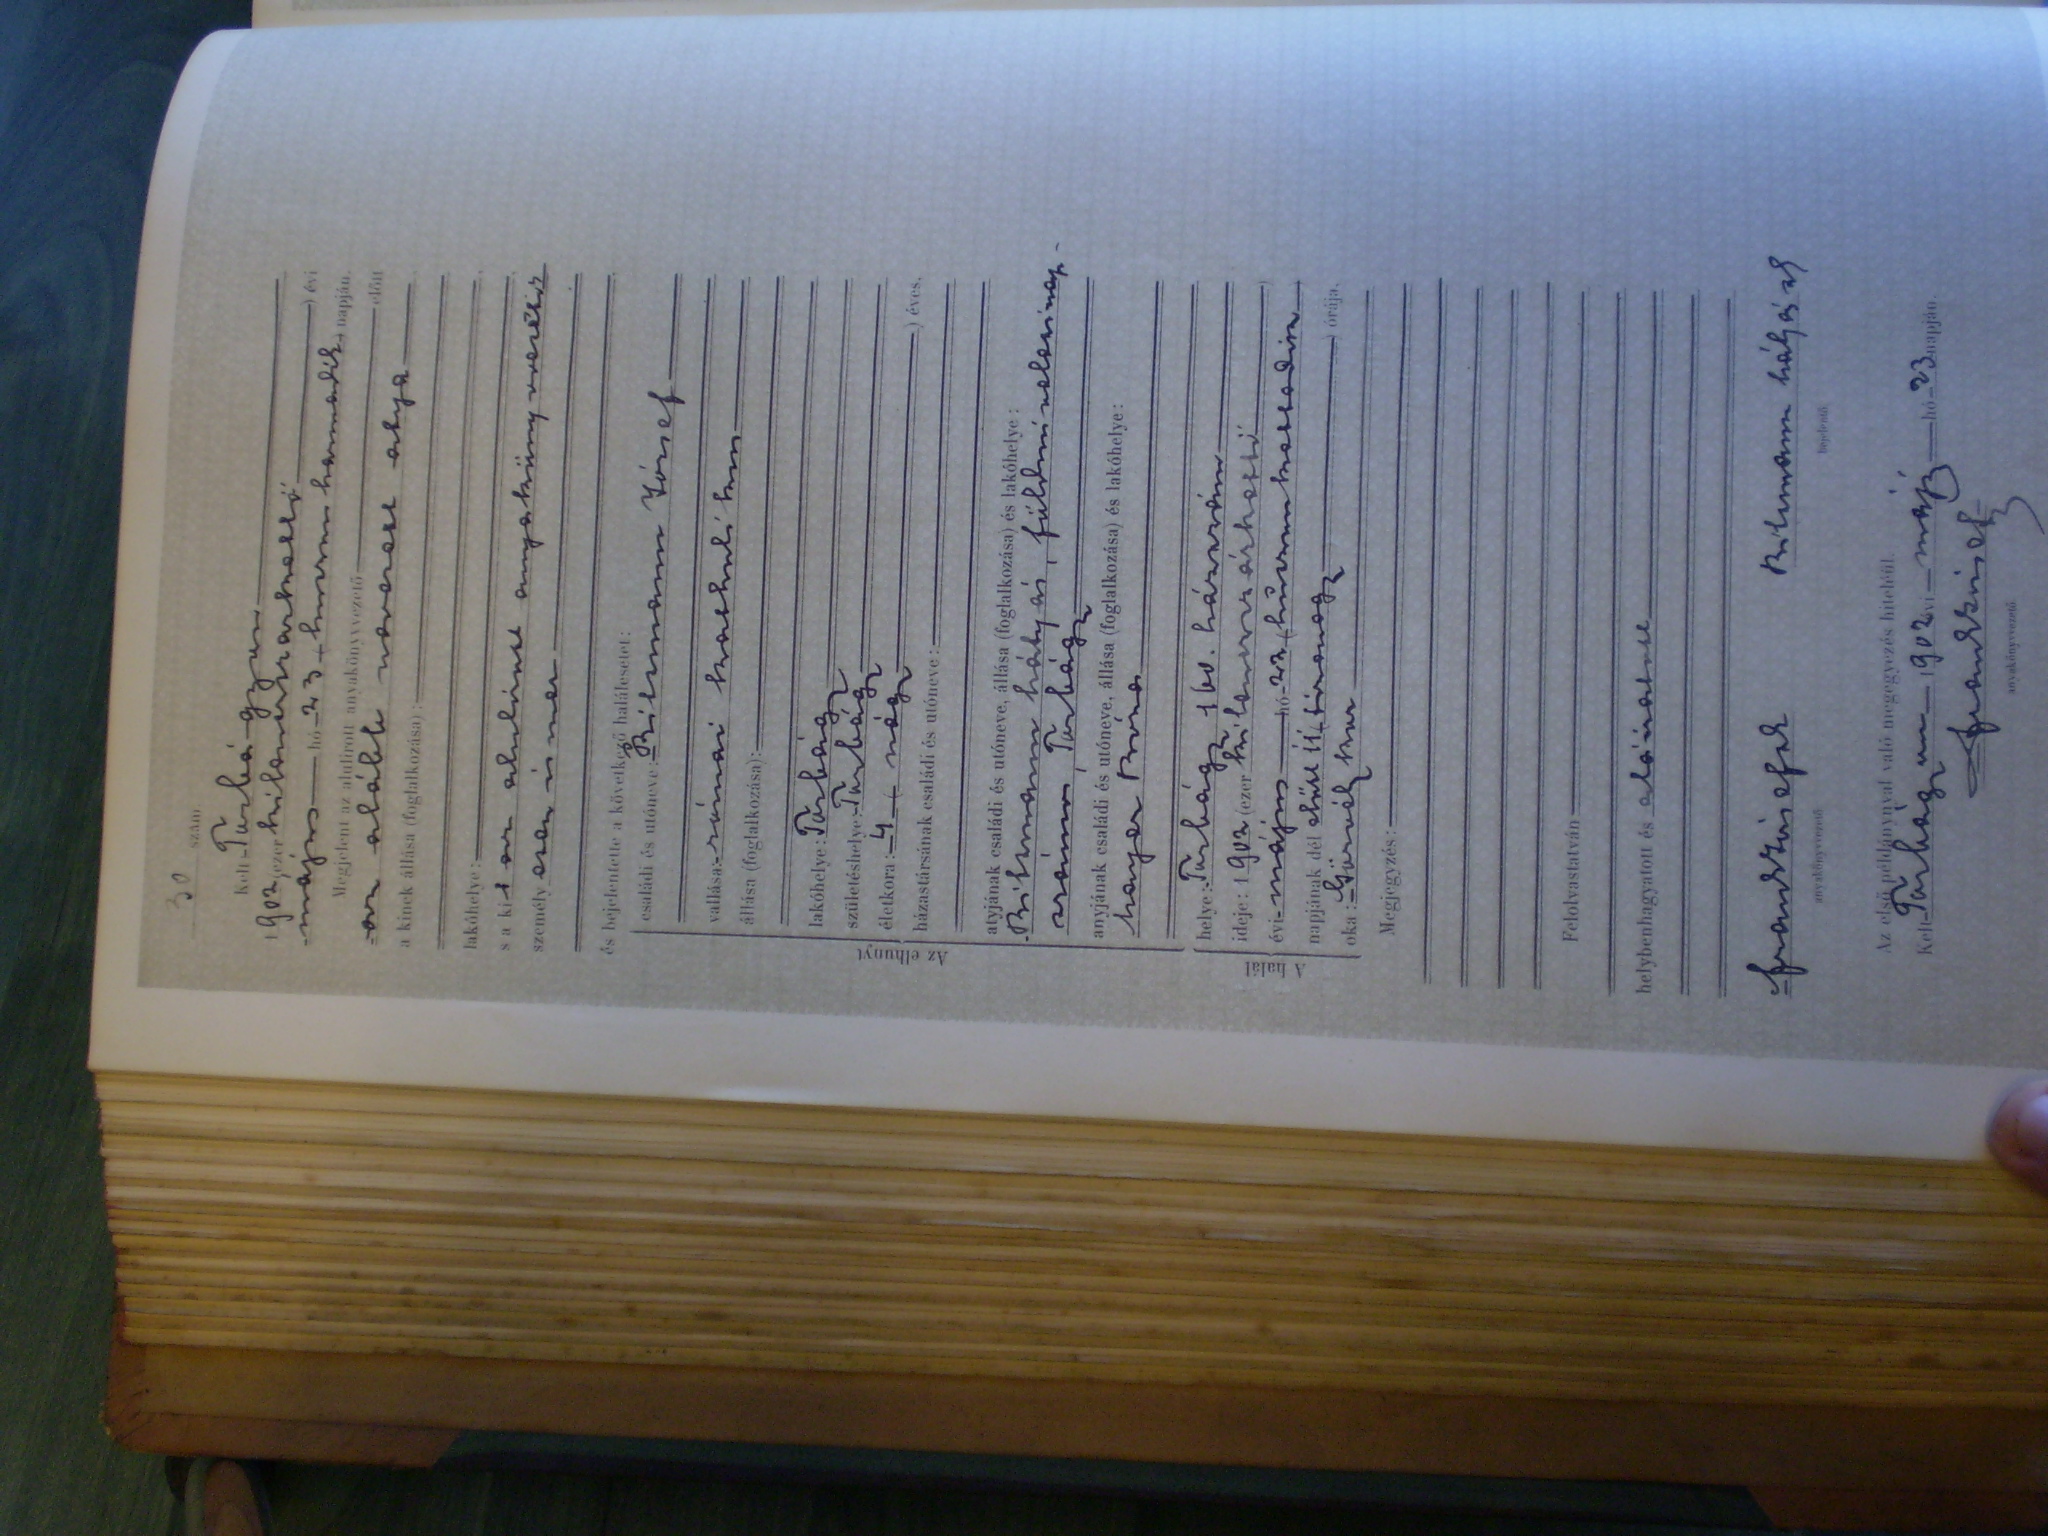 30 szám
Kelt Tarbágyzun
1902 (ezerkilencszázkettő) évi
május hó 23 (huszonharmadik) napján.
Megjelent az alulírott anyakönyvvezető előtt
az alább nevezett atya
a kinek állása (foglalkozása):
lakóhelye:
s a kit az alulírt anyakönyvvezető
személyesen ismer
és bejelentette a következő halálesetet:
Az elhunyt
családi és utóneve: József
vallása: római katholikus
állása (foglalkozása):
lakóhelye:
születéshelye:
életkora: 4 (négy) éves.
házastársának családi és utóneve:
atyjának családi és utóneve, állása (foglalkozása) és lakóhelye:
Mátyás, földmívelő nap-
számos
anyjának családi és utóneve, állása (foglalkozása) és lakóhelye:
A halál
helye: 160. házszám
ideje: 1902 (ezerkilencszázkettő)
évi május hó 22 (huszonkettedik)
napjának dél előtt 11 (tizenegy) órája,
oka: Görvélykór
Megjegyzés:
Felolvastatván
helybenhagyatott és aláíratott
anyakönyvvezető
Mátyás
bejelentő
Az első példánnyal való megegyezés hiteléül.
Kelt 1902 évi máj hó 23 napján.
anyakönyvvezető